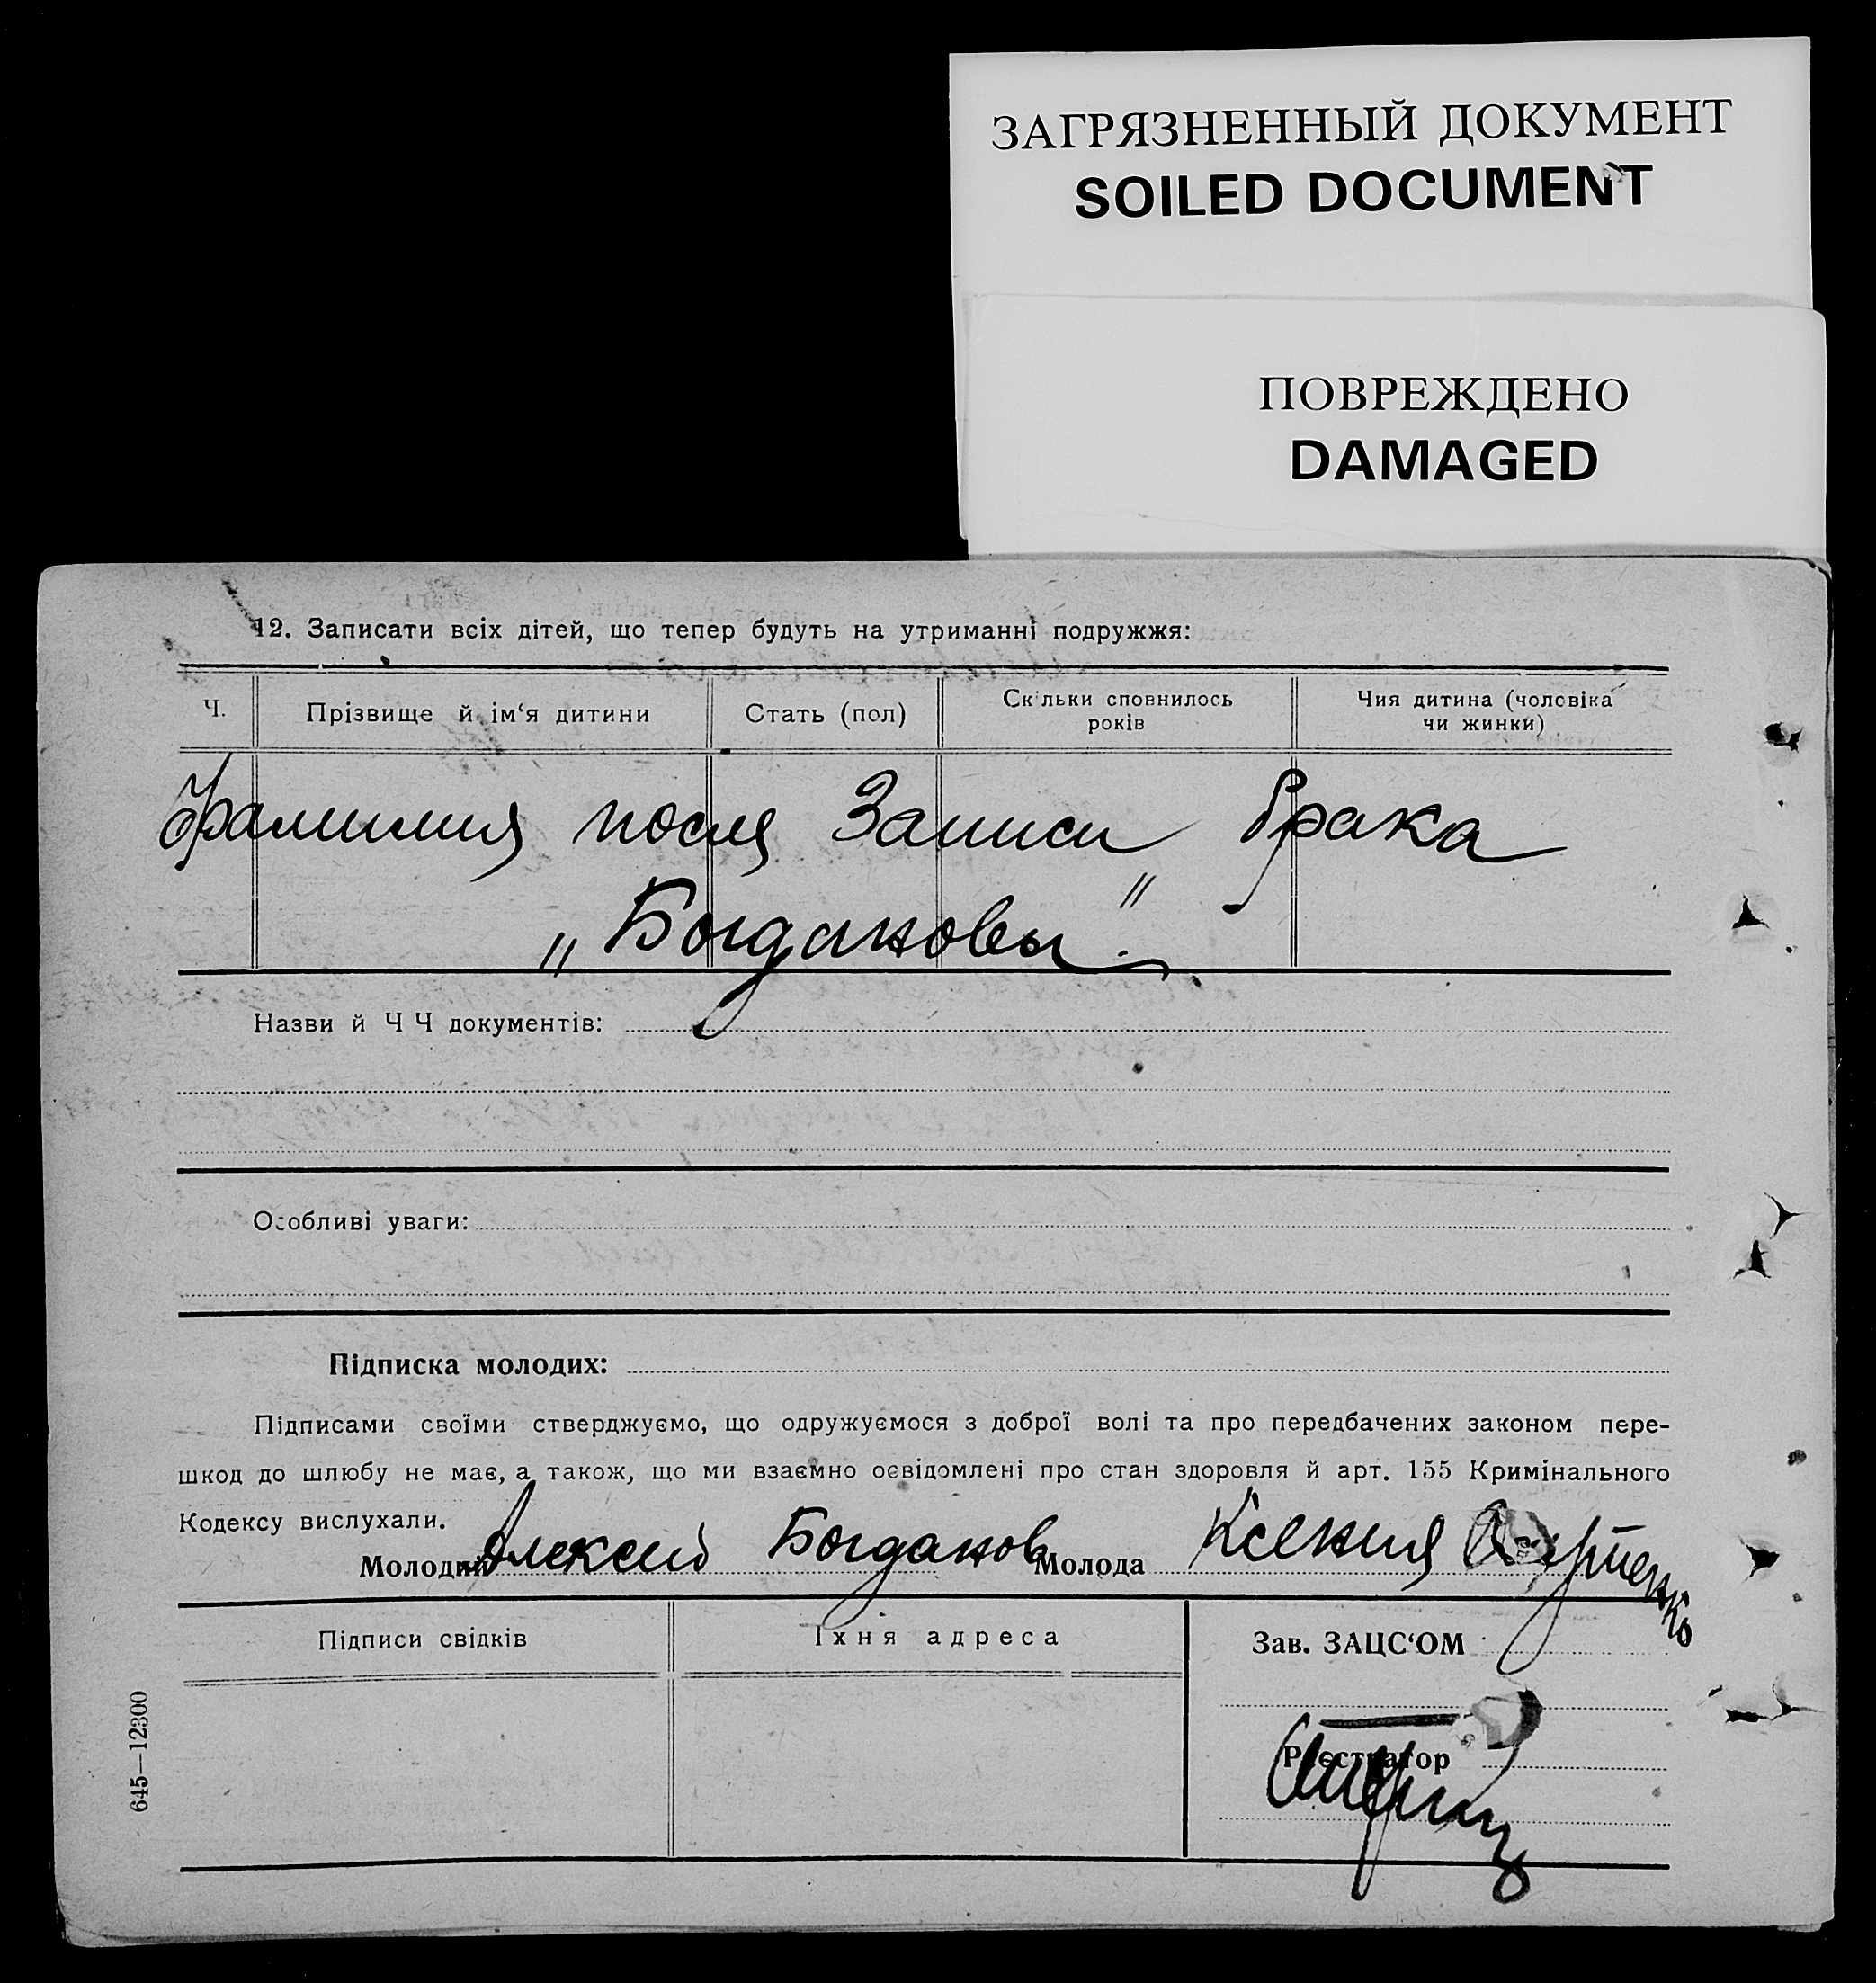 ЗАГРЯЗНЕННЫЙ ДОКУМЕНТ
SOILED DOCUMENT
ПОВРЕЖДЕНО
DAMAGED
12. Записати всіх дітей, що тепер будуть на утриманні подружжя:
Ч.
Прізвище й ім‘я дитини
Стать (пол)
Скільки сповнилось
років
Чия дитина (чоловіка
чи жинки)
Фамилия после Записи брака
„Богдановы"
Назви й Ч Ч документів:
Особливі уваги:
Підписка молодих:
Підписами своїми стверджуємо, що одружуємося з доброї волі та про передбачених законом пере-
шкод до шлюбу не має, а також, що ми взаємно освідомлені про стан здоровля й арт. 155 Кримінального
Кодексу вислухали.
Молодий Алексей Богданов Молода Ксения
Підписи свідків
Їхня адреса
Зав. ЗАЦС‘ОМ
Реєстратор
645—12300